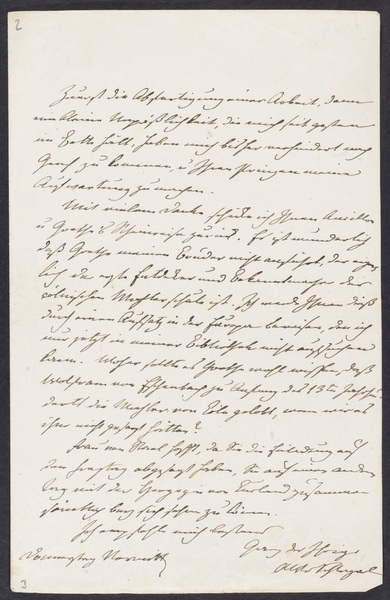 2
Zuerst die Abfertigung einer Arbeit, dann
eine kleine Unpäßlichkeit, die mich seit gestern
im Bette hält, haben mich bisher verhindert nach
Genf zu kommen, u Ihrer Prinzessin meine
Aufwartung zu machen.
Mit vielem Danke schicke ich Ihnen Ancillon
u Goethe's Rheinreise zurück. Es ist wunderlich
daß Goethe meinen Bruder nicht anführt, der eigent
lich der erste Entdecker und Erkenner der
cölnischen Mahlerschule ist. Ich werde Ihnen dieß
durch einen Aufsatz in der Europa beweisen, den ich
nur jetzt in meiner Bibliothek nicht aufsuchen
kann. Woher sollte es Goethe wohl wissen, daß
Wolfram von Eschenbach zu Anfang des 13ten Jahrhun
derts die Mahler von Cöln gelobt, wenn wir es
ihm nicht gesagt hätten?
Frau von Stael hofft, da Sie die Einladung auf
den Freytag abgesagt haben, Sie auf einen andern
Tag mit der Herzogin von Curland zusammen
bey sich sehen zu können.
Ich empfehle mich bestens
Ganz der Ihrige
Donnerstag Vormitt.
AW Schlegel
3